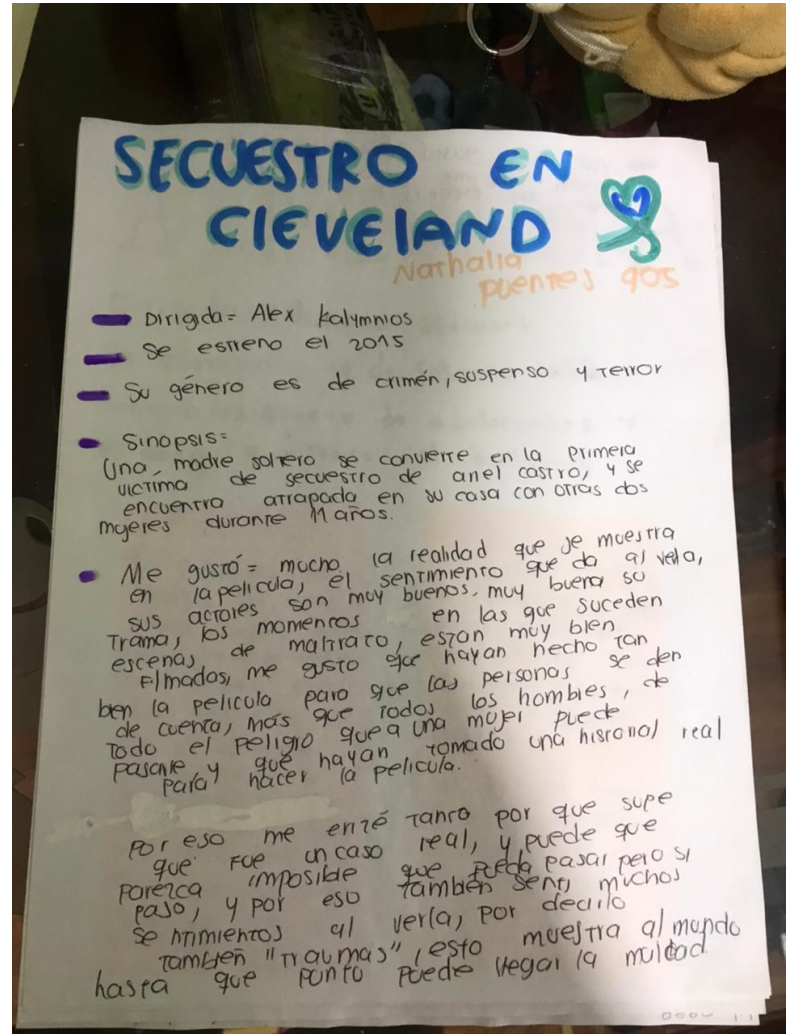 SECUESTRO EN
CIEVEIAND
Nathalia
puentes 905
Dirigida = Alex Kalymnios
Se estreno el 2015
Su género es de crimén, suspenso y Terror
Sinopsis =
Una, madre soltero se convierte en la primera
victima de secuestro de ariel castro, y se
encuentra atrapada en su casa con otras dos
mujeres durante 11 años.
Me gustó = mucho la realidad que se muestra
en la pelicula, el sentimiento que da al verla,
sus actores son muy buenos, muy buena su
Trama, los momentos en las que suceden
escenas de maltrato, estan muy bien
filmados, me gusto que hayan hecho tan
bien la pelicula para que las personas se den
de cuenta, mas que todos los hombres, de
todo el peligro que a una mujer puede
pasarle y que hayan tomado una historia real
para hacer la pelicula.
Por eso me enteré tanto por que supe
que fue un caso real, y puede que
parezca imposible que pueda pasar pero si
paso, y por eso también senti muchos
sentimientos al verla, por decirlo
también "traumas", esto muestra al mundo
hasta que punto puede llegar la maldad